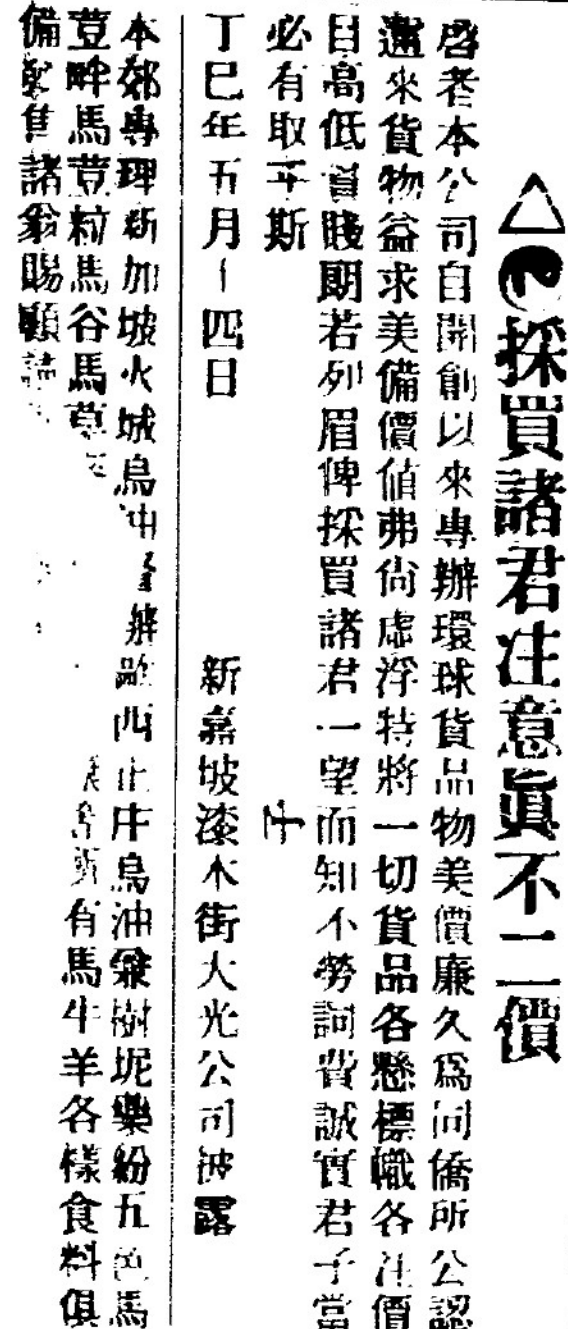 採買諸君注意眞不二價
啓者本公司自開創以來專辦環球貨品物美價廉久爲同僑所公認
邇來貨物益求美備價值弗尙虛浮特將一切貨品各懸標幟各注價
目高低貴賤朗若列眉俾採買諸君一望而知不勞詞費誠實君子當
必有取乎斯
丁巳年五月 四日 新嘉坡漆木街大光公司披露
本郊專理新加坡火城烏油 西 烏油 樹坭 粉五色馬
荳畔馬荳粒馬谷馬草 有馬牛羊各樣食料俱
備 售諸翁賜顧請